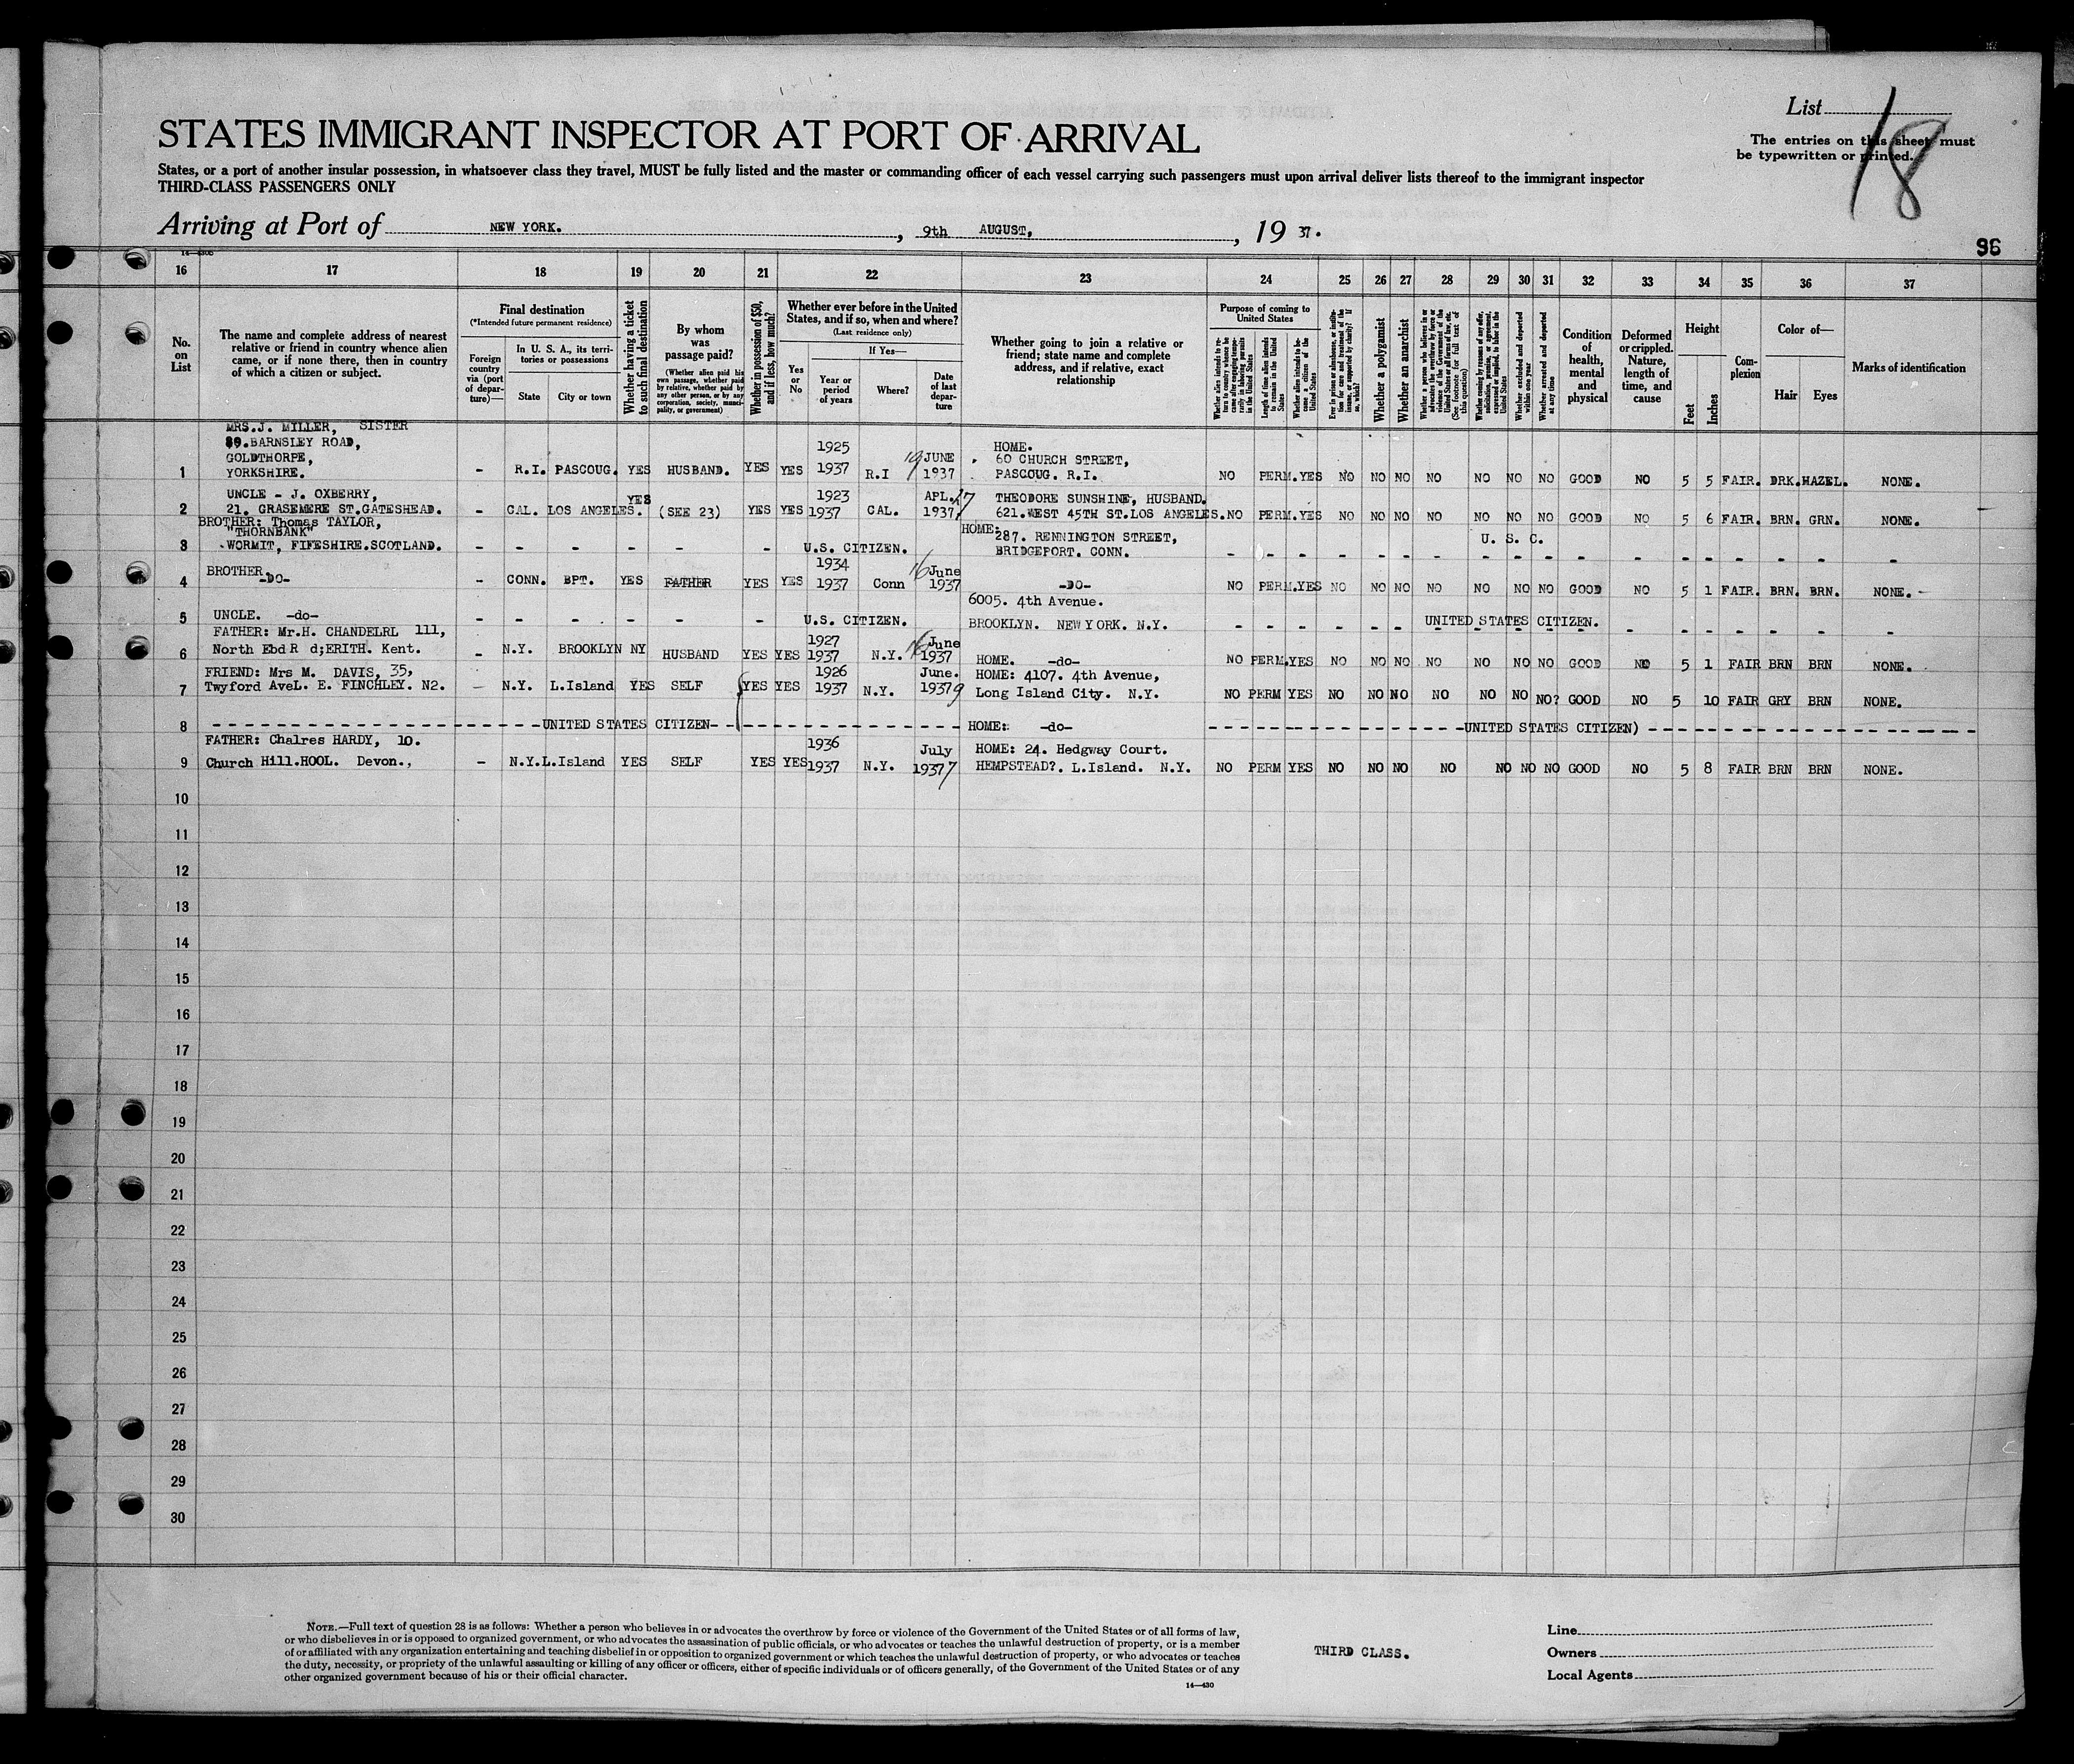 List 18
STATES IMMIGRANT INSPECTOR AT PORT OF ARRIVAL
The entries on this sheet must
be typewritten or printed.
States, or a port of another insular possession, in whatsoever class they travel, MUST be fully listed and the master or commanding officer of each vessel carrying such passengers must upon arrival deliver lists thereof to the immigrant inspector
THIRD-CLASS PASSENGERS ONLY
Arriving at Port of NEW YORK. , 9th AUGUST, , 19 37.
96
16 17 18 19 20 21 22 23 24 25 26 27 28 29 30 31 32 33 34 35 36 37
No. on List
The name and complete address of nearest
relative or friend in country whence alien
came, or if none there, then in country
of which a citizen or subject.
Final destination
(*Intended future permanent residence)
Foreign country via (port of departure)—
In U. S. A., its territories or possessions
State
City or town
Whether having a ticket to such final destination
By whom was passage paid?
(Whether alien paid his own passage, whether paid by relative, whether paid by any other person, or by any corporation, society, municipality, or government)
Whether in possession of $50, and if less, how much?
Whether ever before in the United
States, and if so, when and where?
(Last residence only)
Yes or No
If Yes—
Year or period of years
Where?
Date of last departure
Whether going to join a relative or
friend; state name and complete
address, and if relative, exact
relationship
Purpose of coming to United States
Whether alien intends to return to country whence he came after engaging temporarily in laboring pursuits in the United States
Length of time alien intends to remain in the United States
Whether alien intends to become a citizen of the United States
Ever in prison or almshouse, or institution for care and treatment of the insane, or supported by charity? If so, which?
Whether a polygamist
Whether an anarchist
Whether a person who believes in or advocates the overthrow by force or violence of the Government of the United States or all forms of law, etc. (See footnote for full text of this question)
Whether coming by reasons of any offer, solicitation, promise, or agreement, expressed or implied, to labor in the United States
Whether excluded and deported within one year
Whether arrested and deported at any time
Condition of health, mental and physical
Deformed or crippled. Nature, length of time, and cause
Height
Feet
Inches
Complexion
Color of—
Hair
Eyes
Marks of identification
MRS.J. MILLER, SISTER
89.BARNSLEY ROAD,
GOLDTHORPE,
1 YORKSHIRE. - R.I. PASCOUG. YES HUSBAND. YES YES 1925 1937 R.I 19 JUNE 1937 HOME. 60 CHURCH STREET, PASCOUG. R.I. NO PERM.YES NO NO NO NO NO NO NO GOOD NO 5 5 FAIR. DRK.HAZEL. NONE.
UNCLE - J. OXBERRY,
2 21. GRASEMERE ST.GATESHEAD. - CAL. LOS ANGELES. YES (SEE 23) YES YES 1923 1937 CAL. APL. 17 1937 THEODORE SUNSHINE, HUSBAND. 621.WEST 45TH ST.LOS ANGELES. NO PERM.YES NO NO NO NO NO NO NO GOOD NO 5 6 FAIR. BRN. GRN. NONE.
BROTHER: Thomas TAYLOR,
"THORNBANK"
3 WORMIT, FIFESHIRE.SCOTLAND. - - - - - - U.S. CITIZEN. HOME: 287. RENNINGTON STREET, BRIDGEPORT. CONN. U. S. C.
BROTHER.
4 -DO- - CONN. BPT. YES FATHER YES YES 1934 1937 Conn 16 June 1937 -DO- NO PERM.YES NO NO NO NO NO NO NO GOOD NO 5 1 FAIR. BRN. BRN. NONE.
5 UNCLE. -do- - - - - - - U.S. CITIZEN. 6005. 4th Avenue. BROOKLYN. NEW YORK. N.Y. UNITED STATES CITIZEN.
FATHER: Mr.H. CHANDELRL 111,
6 North Ebd R d;ERITH. Kent. - N.Y. BROOKLYN NY HUSBAND YES YES 1927 1937 N.Y. 16 June 1937 HOME. -do- NO PERM.YES NO NO NO NO NO NO NO GOOD NO 5 1 FAIR BRN BRN NONE.
FRIEND: Mrs M. DAVIS, 35,
7 Twyford AveL. E. FINCHLEY. N2. - N.Y. L.Island YES SELF YES YES 1926 1937 N.Y. June. 1937 9 HOME: 4107. 4th Avenue, Long Island City. N.Y. NO PERM YES NO NO NO NO NO NO NO? GOOD NO 5 10 FAIR GRY BRN NONE.
8 UNITED STATES CITIZEN HOME: -do- UNITED STATES CITIZEN)
FATHER: Chalres HARDY, 10.
9 Church Hill.HOOL. Devon., - N.Y.L.Island YES SELF YES YES 1936 1937 N.Y. July 1937 7 HOME: 24. Hedgway Court. HEMPSTEAD?. L.Island. N.Y. NO PERM YES NO NO NO NO NO NO NO GOOD NO 5 8 FAIR BRN BRN NONE.
10
11
12
13
14
15
16
17
18
19
20
21
22
23
24
25
26
27
28
29
30
NOTE.—Full text of question 28 is as follows: Whether a person who believes in or advocates the overthrow by force or violence of the Government of the United States or of all forms of law,
or who disbelieves in or is opposed to organized government, or who advocates the assassination of public officials, or who advocates or teaches the unlawful destruction of property, or is a member
of or affiliated with any organization entertaining and teaching disbelief in or opposition to organized government or which teaches the unlawful destruction of property, or who advocates or teaches
the duty, necessity, or propriety of the unlawful assaulting or killing of any officer or officers, either of specific individuals or of officers generally, of the Government of the United States or of any
other organized government because of his or their official character.
14—430
THIRD CLASS.
Line
Owners
Local Agents